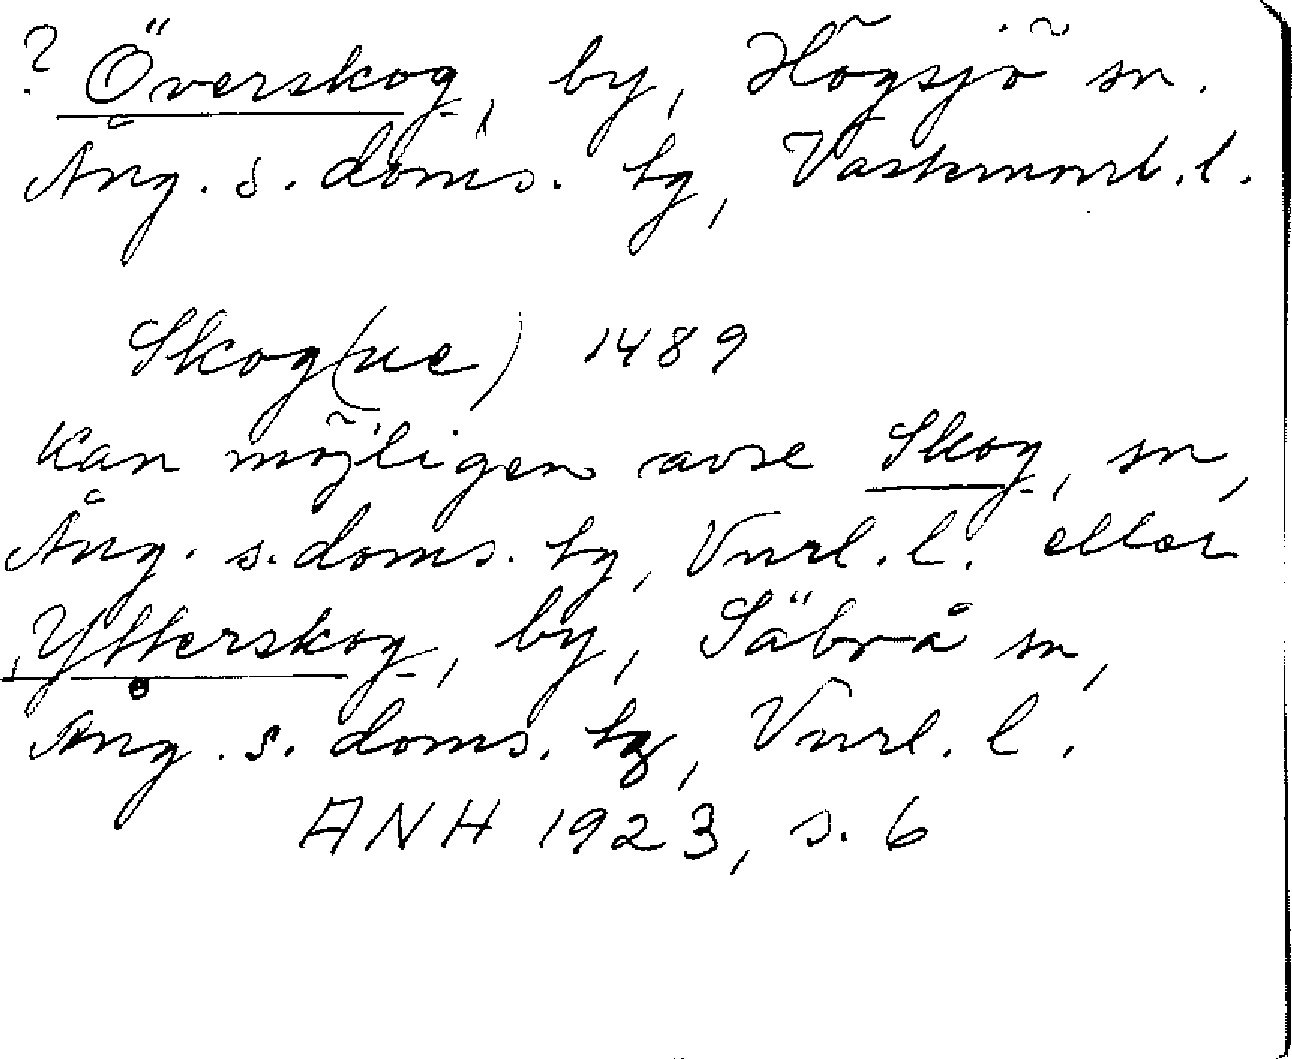 ? Överskog, by, Högsjö sn.
Ång. s. doms. tg, Västernorrl. l.
Skog(ne) 1489
kan möjligen avse Skog, sn,
Ång. s. doms. tg, Vnrl. l. eller
Ytterskog, by, Säbrå sn,
Ång. s. doms. tg, Vnrl. l.
ANH 1923, s. 6